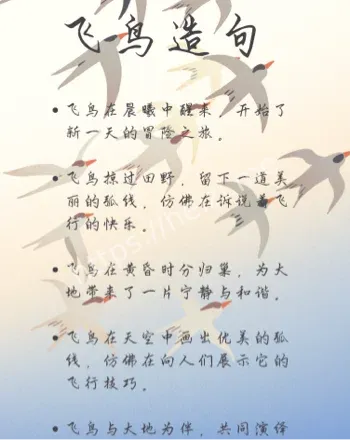 飞鸟造句
• 飞鸟在晨曦中醒来，开始了
新一天的冒险之旅。
• 飞鸟掠过田野，留下一道美
丽的弧线，仿佛在诉说着飞
行的快乐。
• 飞鸟在黄昏时分归巢，为大
地带来了一片宁静与和谐。
• 飞鸟在天空中画出优美的弧
线，仿佛在向人们展示它的
飞行技巧。
• 飞鸟与大地为伴，共同演绎